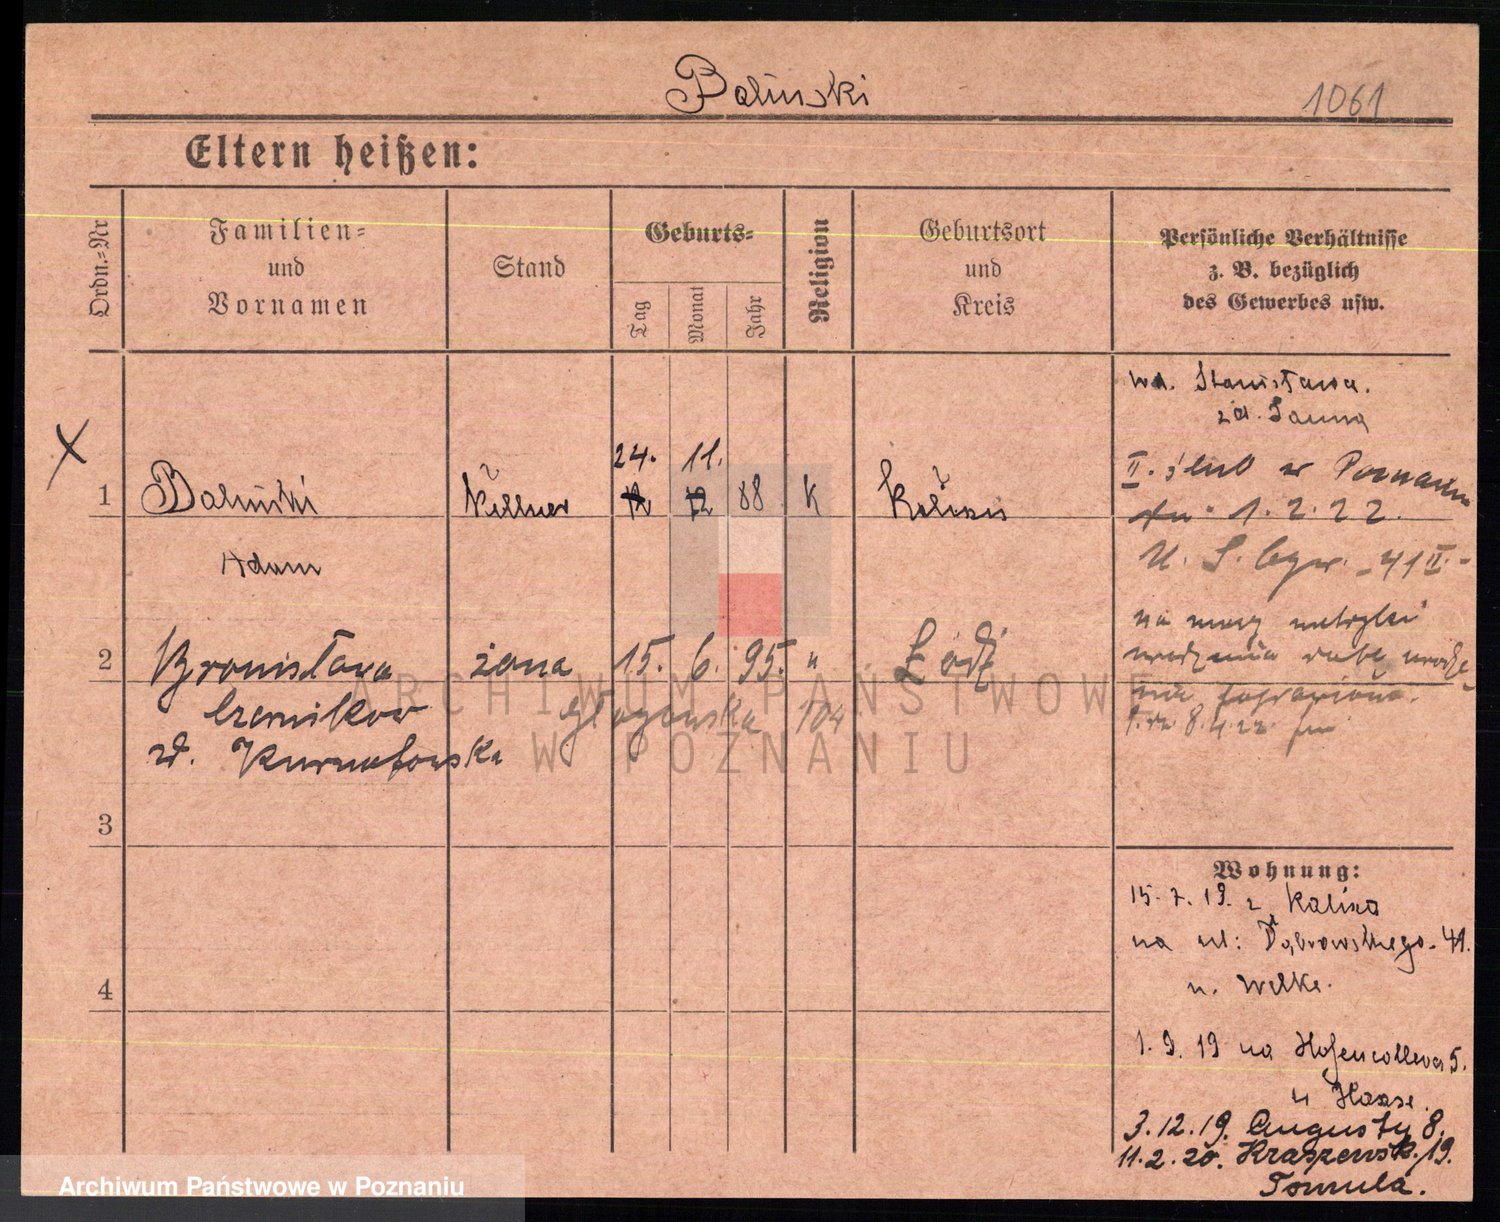 Balinski
1061
Eltern heißen:
Ordn.-Nr
Familien-
und
Vornamen
Stand
Geburts-
Tag
Monat
Jahr
Religion
Geburtsort
und
Kreis
Persönliche Verhältnisse
z. B. bezüglich
des Gewerbes usw.
wd. Stanisława.
zd.
X
24. 11.
1 Balinski Kellner 12 12 88 K Kalisz
Adam
II. ślub w Poznaniu
1.2.22.
U. S. 41 II.
na mocy metryki
urodzenia datę urodze-
nia poprawiono.
P. dn 8.4.22.
2 Bronisława żona 15. 6. 95. " Łódź
Czernikow Głogowska 104
zd. Kurnatowska
3
4
Wohnung:
15.7.19. z Kalisza
na ul: Dąbrowskiego 41.
u. Welke.
1.9.19 na Hohenzollern 5.
u Haase.
3.12.19. Augusty 8.
11.2.20. Kraszewsk. 19.
Tomula.
ARCHIWUM PAŃSTWOWE
W POZNANIU
Archiwum Państwowe w Poznaniu